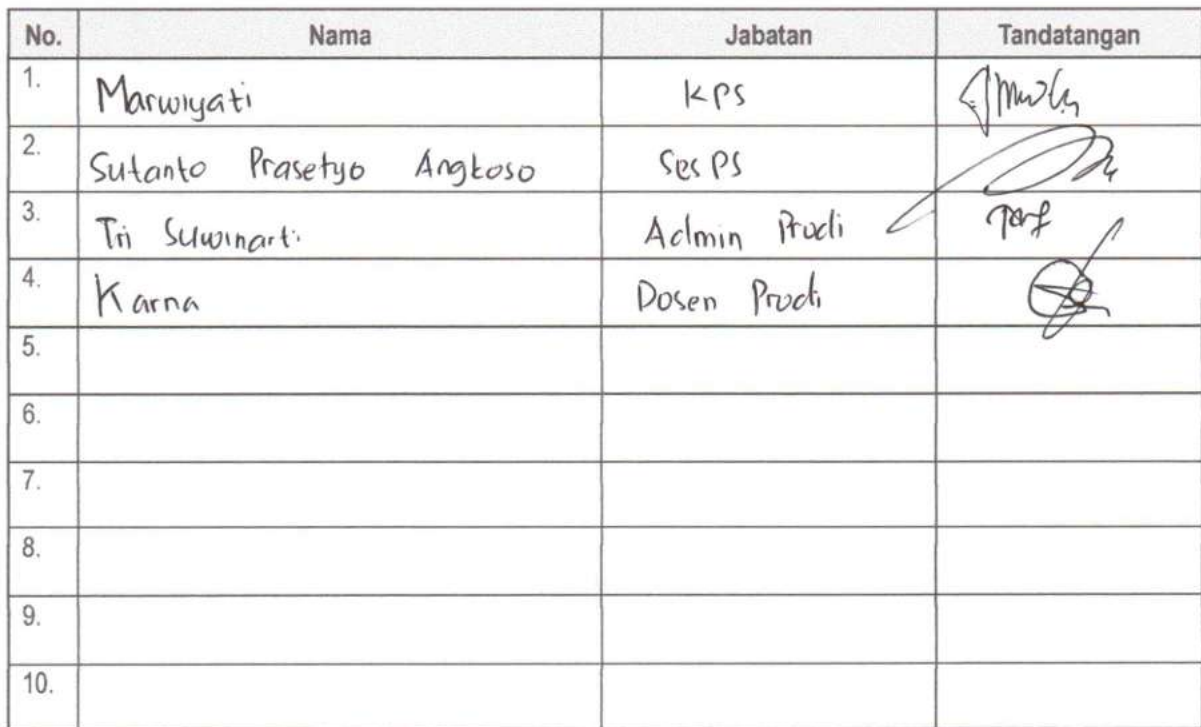 No. Nama Jabatan Tandatangan
1. Marwiyati KPS
2. Sutanto Prasetyo Angkoso Ses PS
3. Tri Suwinarti Admin Prodi
4. Karna Dosen Prodi
5.
6.
7.
8.
9.
10.